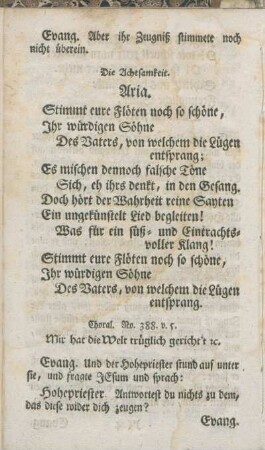 Evang. Aber ihr Zeugniß stimmete noch
nicht überein.
Die Achtsamkeit.
Aria.
Stimmt eure Flöten noch so schöne,
Ihr würdigen Söhne
Des Vaters, von welchem die Lügen
entsprang;
Es mischen dennoch falsche Töne
Sich, eh ihrs denkt, in den Gesang.
Doch hört der Wahrheit reine Sayten
Ein ungekünstelt Lied begleiten!
Was für ein süß- und Eintrachts-
voller Klang!
Stimmt eure Flöten noch so schöne,
Ihr würdigen Söhne
Des Vaters, von welchem die Lügen
entsprang.
Choral. No. 388. v. 5.
Mir hat die Welt trüglich gericht't ꝛc.
Evang. Und der Hohepriester stund auf unter
sie, und fragte JEsum und sprach:
Hohepriester Antwortest du nichts zu dem,
das diese wider dich zeugen?
Evang.